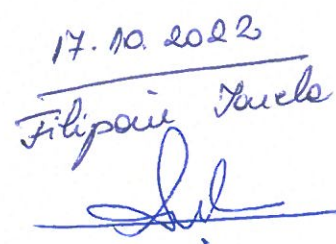 17.10.2022
Filipoiu Ionela